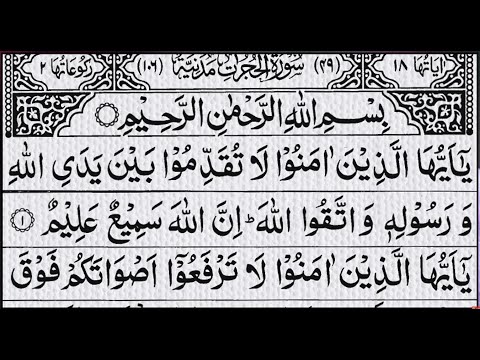 اٰیَاتُهَا ۱۸ (۴۹) سُوْرَةُ الْحُجُرٰتِ مَدَنِیَّةٌ (۱۰۶) رُکُوْعَاتُهَا ۲
بِسْمِ اللهِ الرَّحْمٰنِ الرَّحِیْمِ
یٰۤاَیُّهَا الَّذِیْنَ اٰمَنُوْا لَا تُقَدِّمُوْا بَیْنَ یَدَیِ اللهِ
وَ رَسُوْلِهٖ وَ اتَّقُوا اللهَ ؕ اِنَّ اللهَ سَمِیْعٌ عَلِیْمٌ ۱
یٰۤاَیُّهَا الَّذِیْنَ اٰمَنُوْا لَا تَرْفَعُوْۤا اَصْوَاتَكُمْ فَوْقَ